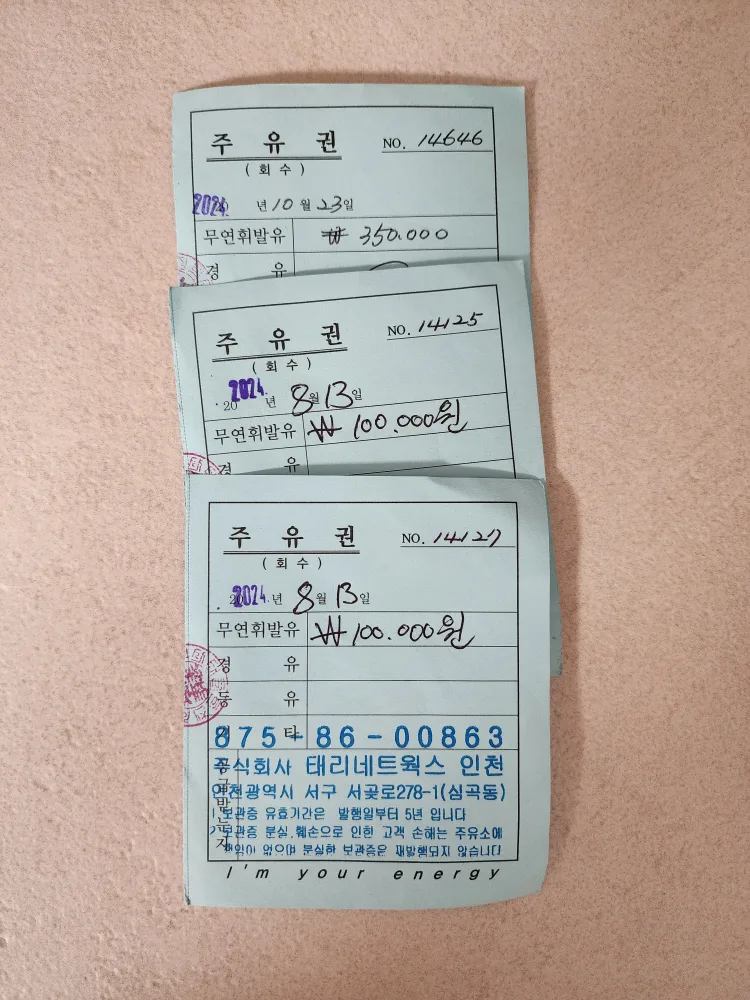 주 유 권 NO. 14646
(회 수)
2024. 년 10 월 23일
무연휘발유 ₩ 350.000
경 유
주 유 권 NO. 14125
(회 수)
20 2024. 년 8월 13일
무연휘발유 ₩ 100.000원
경 유
주 유 권 NO. 14127
(회 수)
2024. 년 8월 13일
무연휘발유 ₩ 100.000원
경 유
등 유
기 타
875-86-00863
주식회사 태리네트웍스 인천
인천광역시 서구 서곶로278-1(심곡동)
1. 보관증 유효기간은 발행일부터 5년 입니다
2. 보관증 분실,훼손으로 인한 고객 손해는 주유소에
책임이 없으며 분실한 보관증은 재발행되지 않습니다
I'm your energy